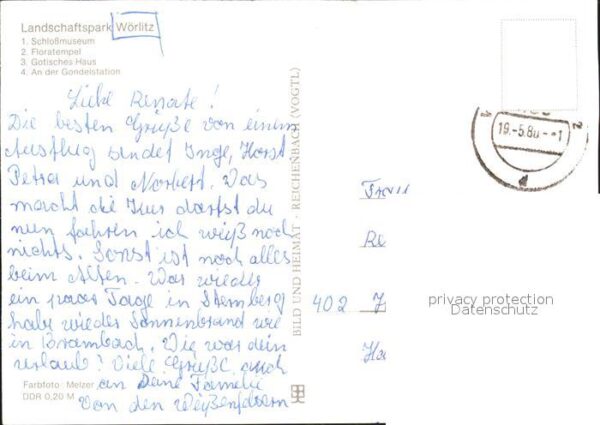 Landschaftspark Wörlitz
1. Schloßmuseum
2. Floratempel
3. Gotisches Haus
4. An der Gondelstation
Liebe Renate!
Die besten Grüße von einem
Ausflug sendet Inge, Horst
Petra und Norbert. Was
macht die Kur darfst du
nun fahren ich weiß noch
nichts. Sonst ist noch alles
beim Alten. War wieder
ein paar Tage in Sternberg
habe wieder Sonnenbrand wie
in Brambach. Wie war dein
Urlaub? Viele Grüße auch
an Deine Familie
Von den Weißenfelsern
Farbfoto: Melzer
DDR 0,20 M
BILD UND HEIMAT · REICHENBACH (VOGTL)
19.-5.80.--1
Frau
Re
402
Ha
privacy protection
Datenschutz